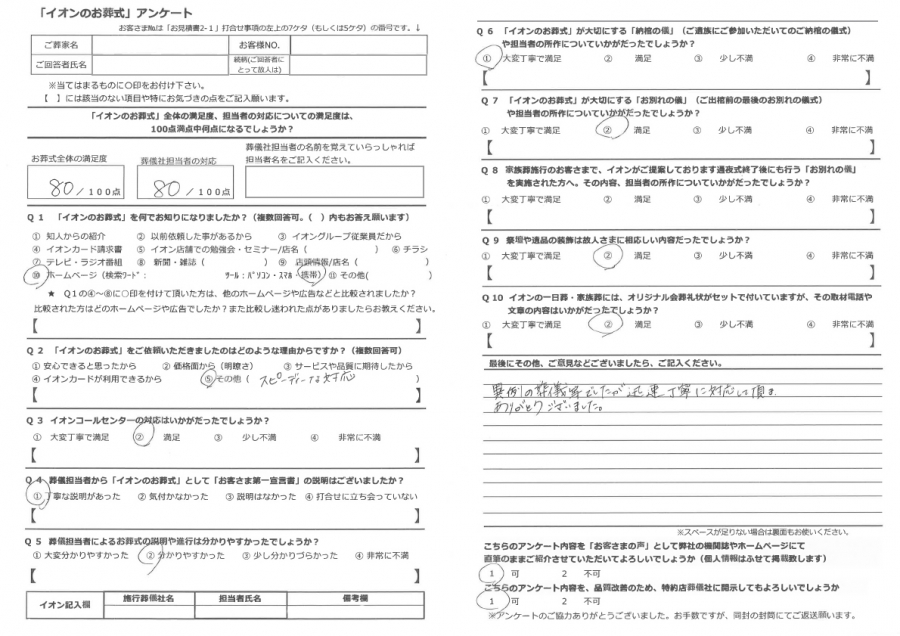 「イオンのお葬式」アンケート
お客さま№は「お見積書2-1」打合せ事項の左上の7ケタ（もしくは5ケタ）の番号です。↓
ご葬家名 お客様NO.
ご回答者氏名 続柄(ご回答者にとって故人は)
※当てはまるものに○印をお付け下さい。
【　】には該当のない項目や特にお気づきの点をご記入願います。
「イオンのお葬式」全体の満足度、担当者の対応についての満足度は、
100点満点中何点になるでしょうか？
お葬式全体の満足度 葬儀社担当者の対応 葬儀社担当者の名前を覚えていらっしゃれば
担当者名をご記入ください。
80／100点 80／100点
Q 1 「イオンのお葬式」を何でお知りになりましたか？（複数回答可。（　）内もお答え願います）
① 知人からの紹介 ② 以前依頼した事があるから ③ イオングループ従業員だから
④ イオンカード請求書 ⑤ イオン店舗での勉強会・セミナー/店名（　） ⑥ チラシ
⑦ テレビ・ラジオ番組 ⑧ 新聞・雑誌（　） ⑨ 店頭情報/店名（　）
⑩ ホームページ（検索ﾜｰﾄﾞ：　ﾂｰﾙ：ﾊﾟｿｺﾝ・ｽﾏﾎ・携帯） ⑪ その他（　）
★ Q1の④～⑧に○印を付けて頂いた方は、他のホームページや広告などと比較されましたか？
比較された方はどのホームページや広告でしたか？また比較し迷われた点がありましたらお教えください。
【　】
Q 2 「イオンのお葬式」をご依頼いただきましたのはどのような理由からですか？（複数回答可）
① 安心できると思ったから ② 価格面から（明瞭さ） ③ サービスや品質に期待したから
④ イオンカードが利用できるから ⑤ その他（ スピーディーな対応 ）
【　】
Q 3 イオンコールセンターの対応はいかがだったでしょうか？
① 大変丁寧で満足 ② 満足 ③ 少し不満 ④ 非常に不満
【　】
Q 4 葬儀担当者から「イオンのお葬式」として「お客さま第一宣言書」の説明はございましたか？
① 丁寧な説明があった ② 気付かなかった ③ 説明はなかった ④ 打合せに立ち会っていない
【　】
Q 5 葬儀担当者によるお葬式の説明や進行は分かりやすかったでしょうか？
① 大変分かりやすかった ② 分かりやすかった ③ 少し分かりづらかった ④ 非常に不満
【　】
イオン記入欄 施行葬儀社名 担当者氏名 備考欄
Q 6 「イオンのお葬式」が大切にする「納棺の儀」（ご遺族にご参加いただいてのご納棺の儀式）
や担当者の所作についていかがだったでしょうか？
① 大変丁寧で満足 ② 満足 ③ 少し不満 ④ 非常に不満
【　】
Q 7 「イオンのお葬式」が大切にする「お別れの儀」（ご出棺前の最後のお別れの儀式）
や担当者の所作についていかがだったでしょうか？
① 大変丁寧で満足 ② 満足 ③ 少し不満 ④ 非常に不満
【　】
Q 8 家族葬施行のお客さまで、イオンがご提案しております通夜式終了後にも行う「お別れの儀」
を実施された方へ。その内容、担当者の所作についていかがだったでしょうか？
① 大変丁寧で満足 ② 満足 ③ 少し不満 ④ 非常に不満
【　】
Q 9 祭壇や遺品の装飾は故人さまに相応しい内容だったでしょうか？
① 大変丁寧で満足 ② 満足 ③ 少し不満 ④ 非常に不満
【　】
Q 10 イオンの一日葬・家族葬には、オリジナル会葬礼状がセットで付いていますが、その取材電話や
文章の内容はいかがだったでしょうか？
① 大変丁寧で満足 ② 満足 ③ 少し不満 ④ 非常に不満
【　】
最後にその他、ご意見などございましたら、ご記入ください。
異例の葬儀でしたが迅速丁寧に対応して頂き
ありがとうございました。
※スペースが足りない場合は裏面もお使いください。
こちらのアンケート内容を「お客さまの声」として弊社の機関誌やホームページにて
直筆のままご紹介させていただいてよろしいでしょうか（個人情報はふせて掲載致します）
1 可 2 不可
こちらのアンケート内容を、品質改善のため、特約店葬儀社に開示してもよろしいでしょうか
1 可 2 不可
※アンケートのご協力ありがとうございました。お手数ですが、同封の封筒にてご返送願います。